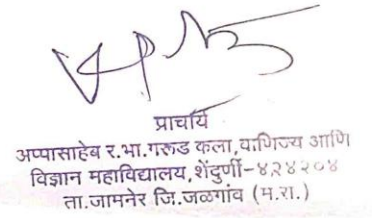 प्राचार्य
अप्पासाहेब र.भा.गरूड कला,वाणिज्य आणि
विज्ञान महाविद्यालय,शेंदुर्णी-४२४२०४
ता.जामनेर जि.जळगांव (म.रा.)